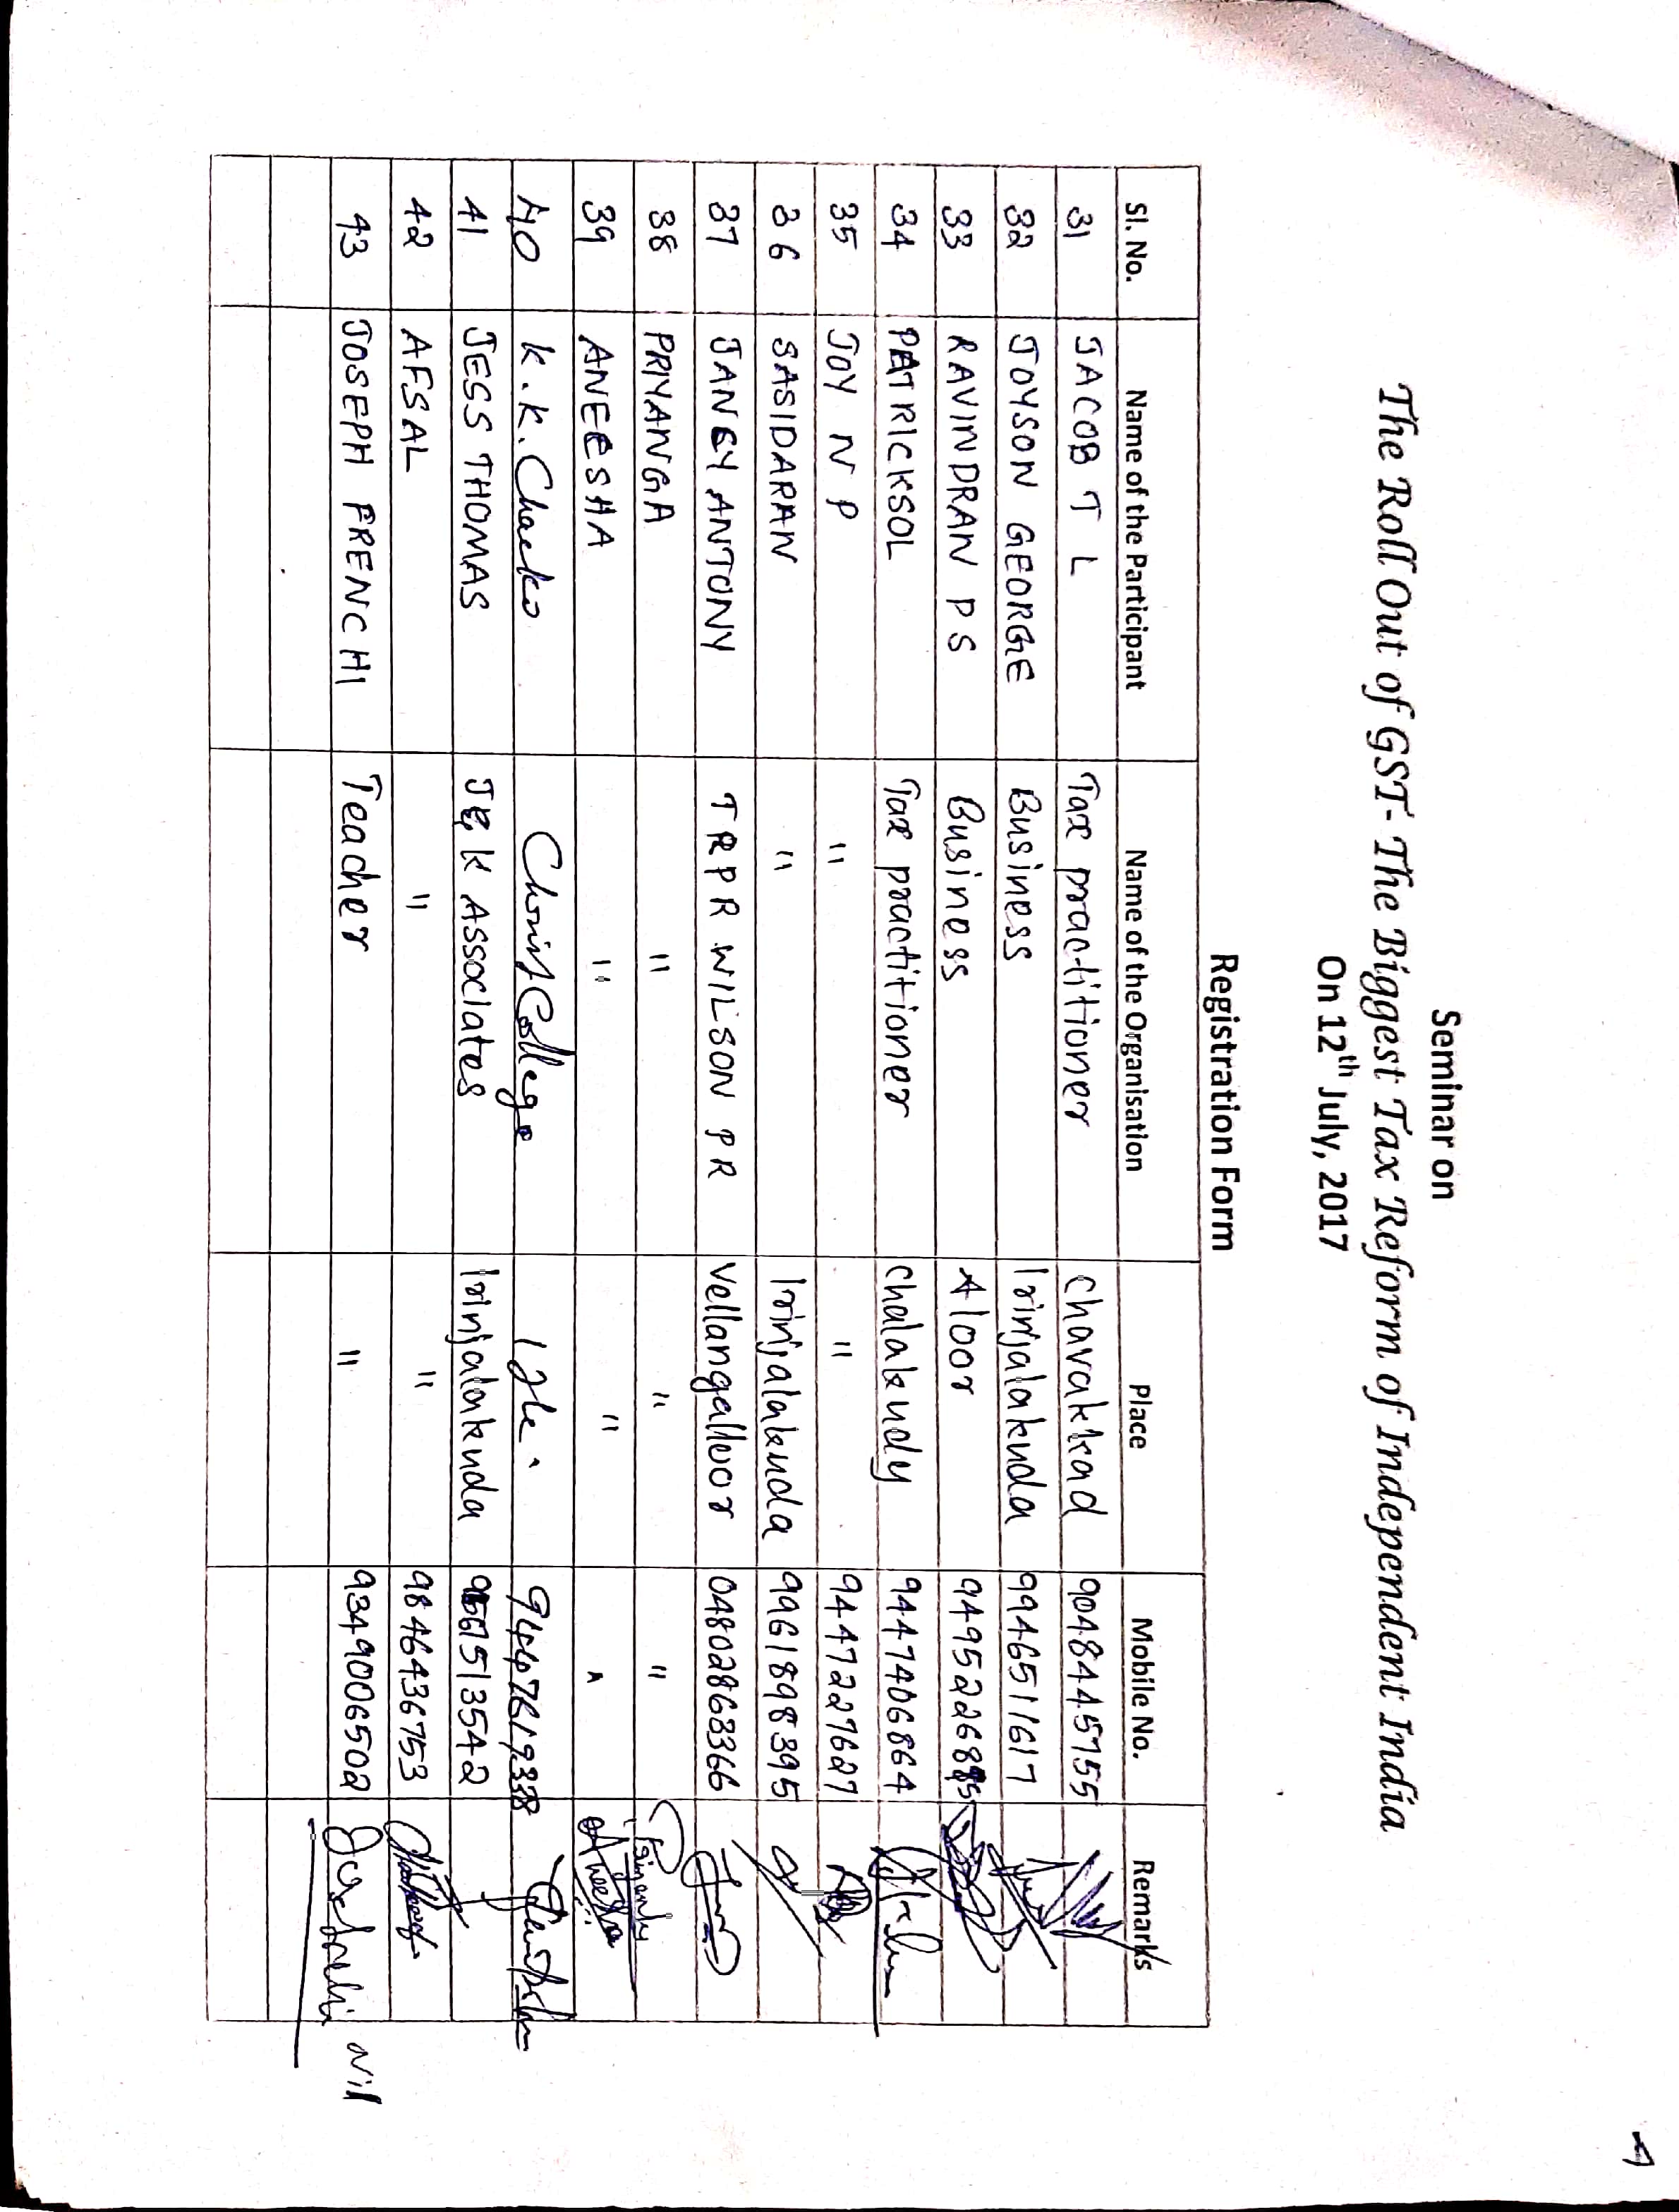 Seminar on
The Roll Out of GST- The Biggest Tax Reform of Independent India
On 12th July, 2017
Registration Form
Sl. No. Name of the Participant Name of the Organisation Place Mobile No. Remarks
31 JACOB T L Tax practitioner Chavakkad 9048445755
32 JOYSON GEORGE Business Irinjalakuda 9946511617
33 RAVINDRAN P S Business Aloor
34 PATRICKSOL Tax practitioner Chalakudy 9447406864
35 JOY N P " " 9447227627
36 SASIDARAN " Irinjalakuda 9961898395
37 JANCY ANTONY T R P R WILSON P R Vellangalloor 04802863366
38 PRIYANGA " " "
39 ANEESHA " " " Aneesha
40 K. K. Chacko Christ College Ijk.
41 JESS THOMAS J & K Associates Irinjalakuda
42 AFSAL " " 9846436753
43 JOSEPH FRENCHI Teacher " 9349006502 Nil